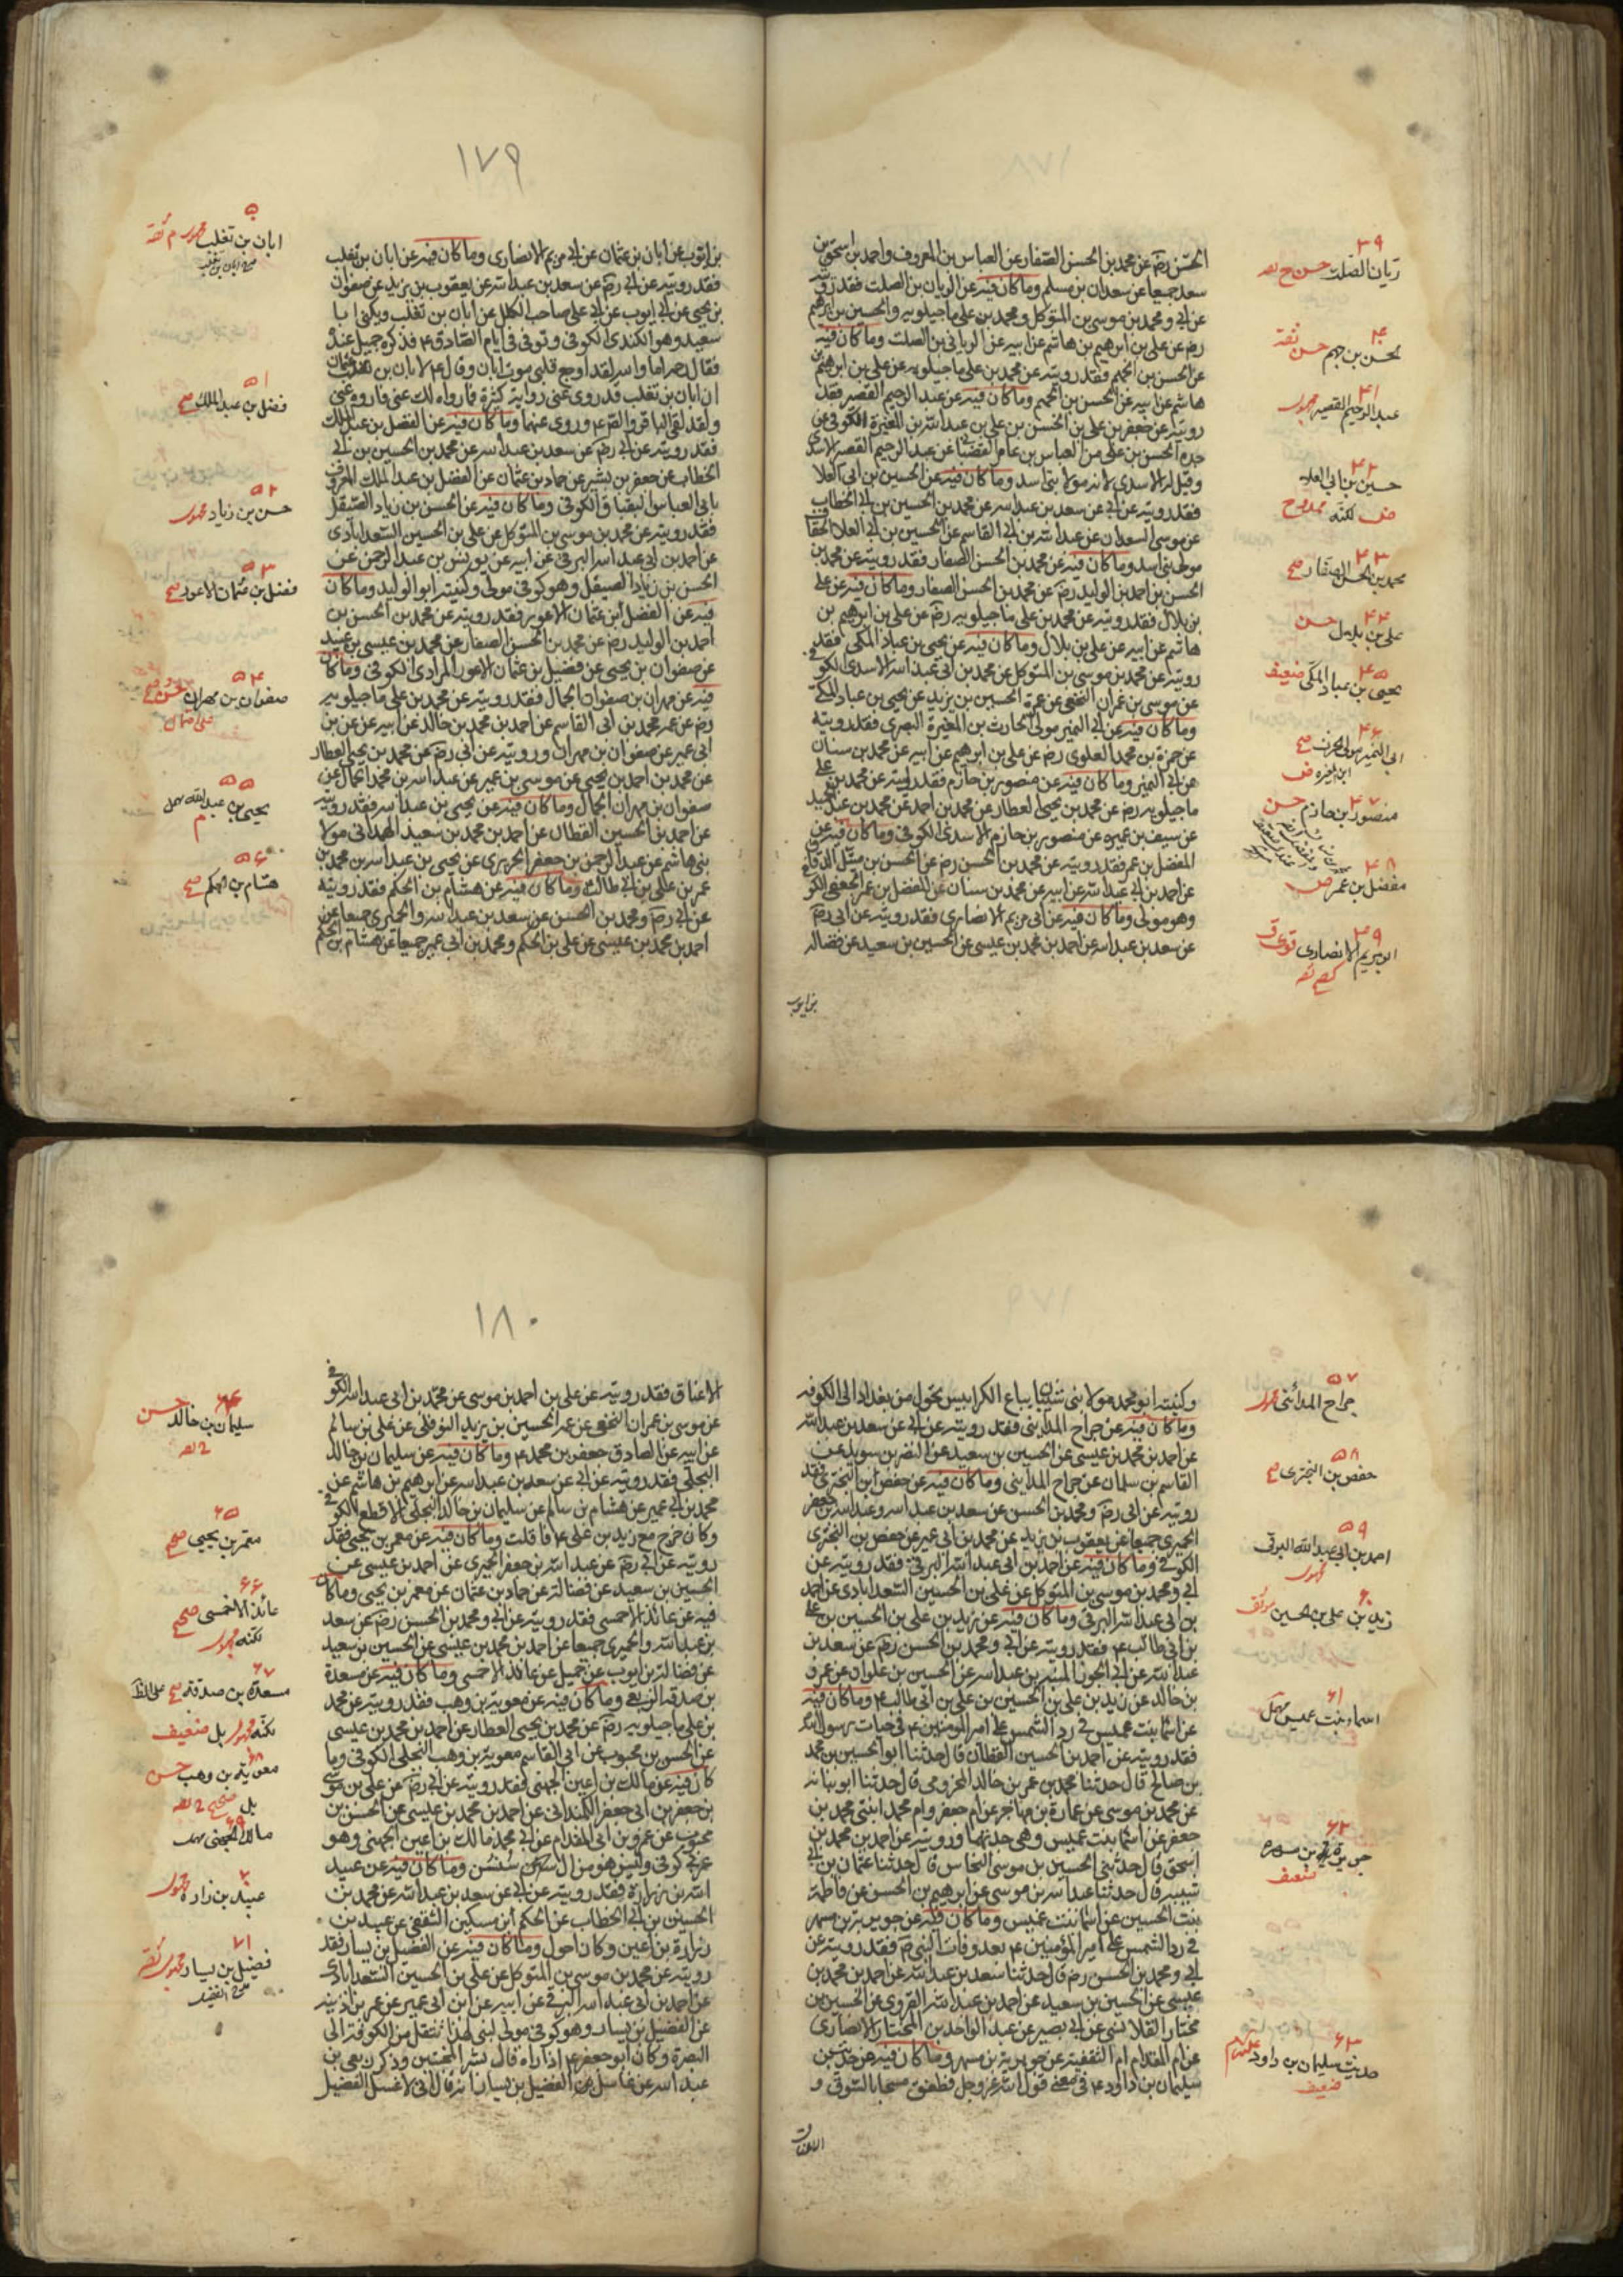 ٣٩
ريان الصلت حسن
٤٠
حسن بن جهم حسن ثقة
٤١
عبد الرحيم القصير مجهول
٤٢
حسين بن ابى العلا
لكنه ممدوح
٤٣
محمد بن الحسن الصفار صح
٤٤
على بن بلال حسن
٤٥
يحيى بن عباد المكى ضعيف
٤٦
ابى النمير مولى
٤٧
منصور بن حازم حسن
٤٨
مفضل بن عمر ض
٤٩
ابو مريم الانصارى
الحسن رضه عن محمد بن الحسن الصفار عن العباس بن المعروف واحمد بن اسحق بن
سعد جميعا عن سعدان بن مسلم وما كان فيه عن الريان بن الصلت فقد رويته
عن ابى ومحمد بن موسى بن المتوكل ومحمد بن على ماجيلويه والحسين بن ابرهيم
رضه عن على بن ابرهيم بن هاشم عن ابيه عن الريان بن الصلت وما كان فيه
عن الحسن بن الجهم فقد رويته عن محمد بن على ماجيلويه عن على بن ابرهيم بن
هاشم عن ابيه عن الحسن بن الجهم وما كان فيه عن عبد الرحيم القصير فقد
رويته عن جعفر بن على بن الحسن بن على بن عبد الله بن المغيرة الكوفى عن
جده الحسن بن على عن العباس بن عامر القصبانى عن عبد الرحيم القصير الاسدى
وقيل له الاسدى لانه مولا بنى اسد وما كان فيه عن الحسين بن ابى العلا
فقد رويته عن ابى عن سعد بن عبد الله عن محمد بن الحسين بن ابى الخطاب
عن موسى السعدان عن عبد الله بن ابى القاسم عن الحسين بن ابى العلا الخفاف
مولى بنى اسد وما كان فيه عن محمد بن الحسن الصفار فقد رويته عن محمد بن
الحسن بن احمد بن الوليد رضه عن محمد بن الحسن الصفار وما كان فيه عن على
بن بلال فقد رويته عن محمد بن على ماجيلويه رضه عن على بن ابرهيم بن
هاشم عن ابيه عن على بن بلال وما كان فيه عن يحيى بن عباد المكى فقد
رويته عن محمد بن موسى بن المتوكل عن محمد بن ابى عبد الله الاسدى الكوفى
عن موسى بن عمران النخعى عن عمه الحسين بن يزيد عن يحيى بن عباد المكى
وما كان فيه عن ابى النمير مولى الحارث بن المغيرة البصرى فقد رويته
عن حمزة بن محمد العلوى رضه عن على بن ابرهيم عن ابيه عن محمد بن سنان
عن ابى النمير وما كان فيه عن منصور بن حازم فقد رويته عن محمد بن على
ماجيلويه رضه عن محمد بن يحيى العطار عن محمد بن احمد عن محمد بن عبد الحميد
عن سيف بن عميره عن منصور بن حازم الاسدى الكوفى وما كان فيه عن
المفضل بن عمر فقد رويته عن محمد بن الحسن رضه عن الحسن بن متيل الدقاق
عن احمد بن ابى عبد الله عن ابيه عن محمد بن سنان عن المفضل بن عمر الجعفى الكو
وهو مولى وما كان فيه عن ابى مريم الانصارى فقد رويته عن ابى رضه
عن سعد بن عبد الله عن احمد بن محمد بن عيسى عن الحسين بن سعيد عن فضاله
بن ايوب
١٧٩
بن ايوب عن ابان بن عثمان عن ابى مريم الانصارى وما كان فيه عن ابان بن تغلب
فقد رويته عن ابى رضه عن سعد بن عبد الله عن يعقوب بن يزيد عن صفوان
بن يحيى عن ابى ايوب عن ابى على صاحب الكلل عن ابان بن تغلب ويكنى ابا
سعيد وهو الكندى الكوفى وتوفى فى ايام الصادق ع فذكره جميل عنده
فقال رحمه الله اما والله لقد اوجع قلبى موت ابان وقال ع لابان بن عثمان
ان ابان بن تغلب قد روى عنى رواية كثيرة فما رواه لك عنى فاروه عنى
ولقد لقى الباقر والصادق ع وروى عنهما وما كان فيه عن الفضل بن عبد الملك
فقد رويته عن ابى رضه عن سعد بن عبد الله عن محمد بن الحسين بن ابى
الخطاب عن جعفر بن بشير عن حماد بن عثمان عن الفضل بن عبد الملك المعروف
بابى العباس البقباق الكوفى وما كان فيه عن الحسن بن زياد الصيقل
فقد رويته عن محمد بن موسى بن المتوكل عن على بن الحسين السعدابادى
عن احمد بن ابى عبد الله البرقى عن ابيه عن يونس بن عبد الرحمن عن
الحسن بن زياد الصيقل وهو كوفى مولى وكنيته ابو الوليد وما كان
فيه عن الفضل ابن عثمان الاعور فقد رويته عن محمد بن الحسن بن
احمد بن الوليد رضه عن محمد بن الحسن الصفار عن محمد بن عيسى بن عبيد
عن صفوان بن يحيى عن فضيل بن عثمان الاعور المرادى الكوفى وما كان
فيه عن مهران بن صفوان الجمال فقد رويته عن محمد بن على ماجيلويه
رضه عن عمه محمد بن ابى القاسم عن احمد بن محمد بن خالد عن ابيه عن بن
ابى عمير عن صفوان بن مهران ورويته عن ابى رضه عن محمد بن يحيى العطار
عن محمد بن احمد بن يحيى عن موسى بن عمير عن عبد الله بن محمد الجمال عن
صفوان بن مهران الجمال وما كان فيه عن يحيى بن عبد الله فقد رويته
عن احمد بن الحسين القطان عن احمد بن محمد بن سعيد الهمدانى مولا
بنى هاشم عن عبد الرحمن بن جعفر الحريرى عن يحيى بن عبد الله بن محمد بن
عمر بن على بن ابى طالب وما كان فيه عن هشام بن الحكم فقد رويته
عن ابى رضه ومحمد بن الحسن عن سعد بن عبد الله والحميرى جميعا عن
احمد بن محمد بن عيسى عن على بن الحكم ومحمد بن ابى عمير جميعا عن هشام بن الحكم
ابان بن تغلب
٥١
فضل بن عبد الملك صح
٥٢
حسن بن زياد مجهول
٥٣
فضل بن عثمان الاعور صح
٥٤
صفوان بن مهران
٥٥
يحيى بن عبد الله
٥٦
هشام بن الحكم صح
٥٧
جراح المدائنى
٥٨
حفص بن البخترى صح
٥٩
احمد بن ابى عبد الله البرقى
٦٠
زيد بن على بن الحسين موثق
٦١
اسماء بنت عميس
٦٢
جويرية بن مسهر
ضعيف
٦٣
حديث سليمان بن داود
ضعيف
وكنيته ابو محمد مولا بنى شيبان بياع الكرابيس تحول من بغداد الى الكوفه
وما كان فيه عن جراح المداينى فقد رويته عن ابى عن سعد بن عبد الله
عن احمد بن محمد بن عيسى عن الحسين بن سعيد عن النضر بن سويد عن
القاسم بن سلمان عن جراح المداينى وما كان فيه عن حفص ابن البخترى فقد
رويته عن ابى رضه ومحمد بن الحسن عن سعد بن عبد الله وعبد الله بن جعفر
الحميرى جميعا عن يعقوب بن يزيد عن محمد بن ابى عمير عن حفص بن البخترى
الكوفى وما كان فيه عن احمد بن ابى عبد الله البرقى فقد رويته عن
ابى ومحمد بن موسى بن المتوكل عن على بن الحسين السعدابادى عن احمد
بن ابى عبد الله البرقى وما كان فيه عن زيد بن على بن الحسين بن على
بن ابى طالب ع فقد رويته عن ابى ومحمد بن الحسن رضه عن سعد بن
عبد الله عن ابى الجوزا المنبه بن عبد الله عن الحسين بن علوان عن عمرو
بن خالد عن زيد بن على بن الحسين بن على بن ابى طالب ع وما كان فيه
عن اسما بنت عميس فى رد الشمس على امير المومنين ع فى حيات رسول الله
فقد رويته عن احمد بن الحسين القطان قال حدثنا ابو الحسين بن محمد
بن صالح قال حدثنا محمد بن عمر بن خالد المخزومى قال حدثنا ابو نباته
عن محمد بن موسى عن عمارة بن مهاجر عن ام جعفر وام محمد ابنتى محمد بن
جعفر عن اسما بنت عميس وهى جدتهما ورويته عن احمد بن محمد بن
اسحق قال حدثنى الحسين بن موسى النخاس قال حدثنا عثمان بن ابى
شيبه قال حدثنا عبد الله بن موسى عن ابرهيم بن الحسن عن فاطمة
بنت الحسين عن اسما بنت عميس وما كان فيه عن جويرية بن مسهر
فى رد الشمس على امير المؤمنين ع بعد وفات النبى ص فقد رويته عن
ابى ومحمد بن الحسن رضه قال حدثنا سعد بن عبد الله عن احمد بن محمد بن
عيسى عن الحسين بن سعيد عن احمد بن عبد الله القروى عن الحسين بن
مختار القلانسى عن ابى بصير عن عبد الواحد بن المختار الانصارى
عن ام المقدام الثقفيه عن جويرية بن مسهر وما كان فيه من حديث
سليمان بن داود ع فى معنى قول الله عز وجل فطفق مسحا بالسوق و
الاعناق
١٨٠
الاعناق فقد رويته عن على بن احمد بن موسى عن محمد بن ابى عبد الله الكوفى
عن موسى بن عمران النخعى عن عمه الحسين بن يزيد النوفلى عن على بن سالم
عن ابيه عن الصادق جعفر بن محمد ع وما كان فيه عن سليمان بن خالد
البجلى فقد رويته عن ابى عن سعد بن عبد الله عن ابرهيم بن هاشم عن
محمد بن ابى عمير عن هشام بن سالم عن سليمان بن خالد البجلى الاقطع الكوفى
وكان خرج مع زيد بن على ع فافلت وما كان فيه عن معمر بن يحيى فقد
رويته عن ابى رضه عن عبد الله بن جعفر الحميرى عن احمد بن عيسى عن
الحسين بن سعيد عن فضالة عن حماد بن عثمان عن معمر بن يحيى وما كان
فيه عن عائذ الاحمسى فقد رويته عن ابى ومحمد بن الحسن رضه عن سعد
بن عبد الله والحميرى جميعا عن احمد بن محمد بن عيسى عن الحسين بن سعيد
عن فضالة بن ايوب عن جميل عن عائذ الاحمسى وما كان فيه عن مسعدة
بن صدقه الربعى وما كان فيه عن معوية بن وهب فقد رويته عن محمد
بن على ماجيلويه رضه عن محمد بن يحيى العطار عن احمد بن محمد بن عيسى
عن الحسن بن محبوب عن ابى القاسم معوية بن وهب البجلى الكوفى وما
كان فيه عن مالك بن اعين الجهنى فقد رويته عن ابى رضه عن على بن موسى
بن جعفر بن ابى جعفر الكمندانى عن احمد بن محمد بن عيسى عن الحسن بن
محبوب عن عمرو بن ابى المقدام عن ابى محمد مالك بن اعين الجهنى وهو
عربى كوفى وليس هو من ال سنسن وما كان فيه عن عبيد
الله بن زرارة فقد رويته عن ابى عن سعد بن عبد الله عن محمد بن
الحسين بن ابى الخطاب عن الحكم ابن مسكين الثقفى عن عبيد بن
زرارة بن اعين وكان احول وما كان فيه عن الفضيل بن يسار فقد
رويته عن محمد بن موسى بن المتوكل عن على بن الحسين السعدابادى
عن احمد بن ابى عبد الله البرقى عن ابيه عن ابن ابى عمير عن عمر بن اذينه
عن الفضيل بن يسار وهو كوفى مولى لبنى نهد انتقل من الكوفة الى
البصرة وكان ابو جعفر ع اذا راه قال بشر المخبتين وذكر ربعى بن
عبد الله عن غاسل الفضيل بن يسار انه قال انى لاغسل الفضيل
٦٤
سليمان بن خالد حسن
٦٥
معمر بن يحيى صح
٦٦
عائذ الاحمسى صحيح
لكنه مجهول
٦٧
مسعدة بن صدقة صح
لكنه مجهول بل ضعيف
٦٨
معوية بن وهب حسن
بل صحيح
٦٩
مالك الجهنى
٧٠
عبيد بن زرارة
٧١
فضيل بن يسار